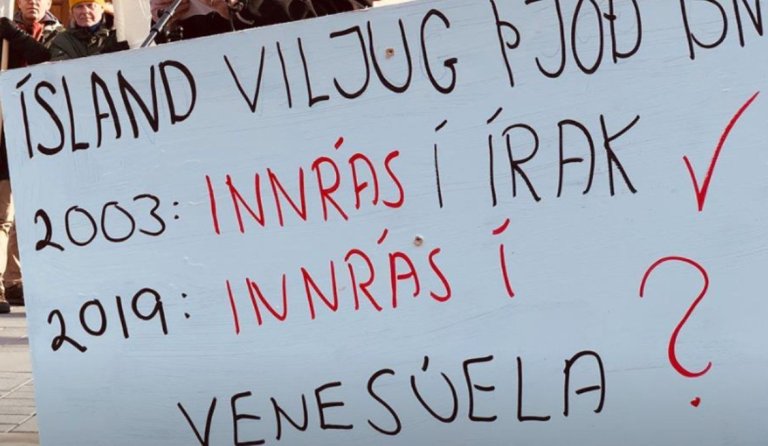 ÍSLAND VILJUG ÞJÓÐ
2003: INNRÁS Í ÍRAK ✓
2019: INNRÁS Í
VENESÚELA ?